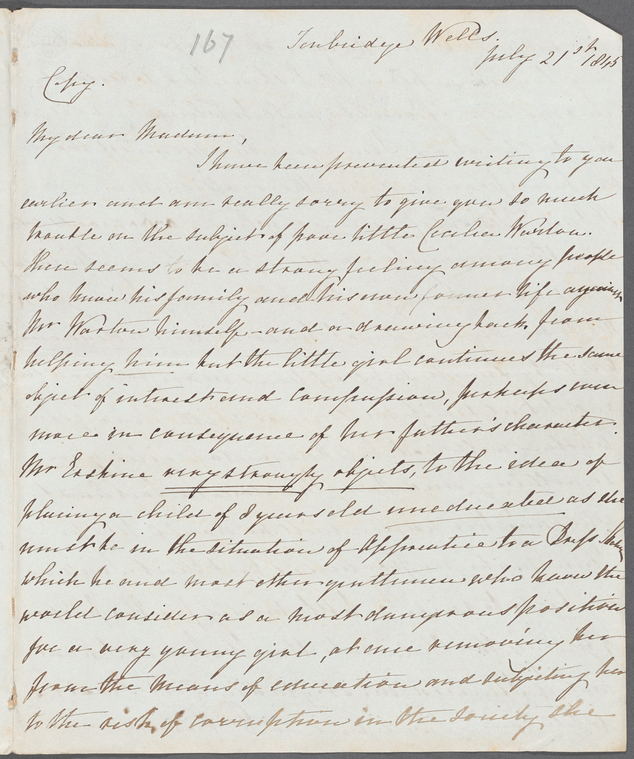 167
Tunbridge Wells.
July 21st 1845
Copy.
My dear Madam,
I have been prevented writing to you
earlier and am really sorry to give you so much
trouble on the subject of poor little Cecilia Warton.
There seems to be a strong feeling among people
who know his family and his own former life against
Mr Warton himself and a drawing back from
helping him but the little girl continues the same
object of interest and compassion, perhaps even
more in consequence of her father's character.
Mr Erskine very strongly objects, to the idea of
placing a child of 8 years old uneducated as she
must be in the situation of Apprentice to a Dress
which he and most other gentlemen who know the
world consider as a most dangerous position
for a very young girl, at once removing her
from the means of education and subjecting her
to the risk of corruption in the society she